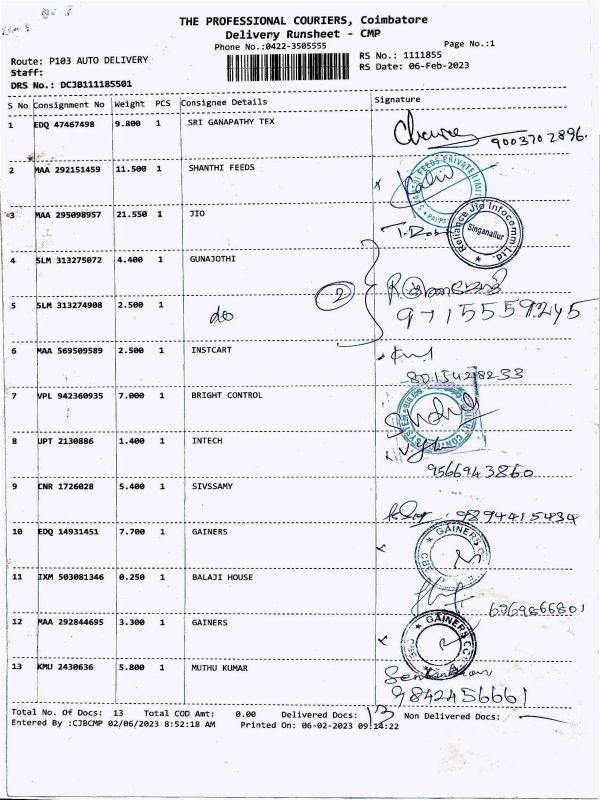 THE PROFESSIONAL COURIERS, Coimbatore
Delivery Runsheet - CMP
Phone No.:0422-3505555
Page No.:1
Route: P103 AUTO DELIVERY
RS No.: 1111855
Staff:
RS Date: 06-Feb-2023
DRS No.: DCJB111185501
S No Consignment No Weight PCS Consignee Details Signature
1 EDQ 47467498 9.800 1 SRI GANAPATHY TEX
9003702896.
2 MAA 292151459 11.500 1 SHANTHI FEEDS
3 MAA 295098957 21.550 1 JIO
Reliance Jio Infocomm Ltd. Singanallur
4 SLM 313275072 4.400 1 GUNAJOTHI
5 SLM 313274908 2.500 1 do
2
9715559245
6 MAA 569509589 2.500 1 INSTCART
8015428233
7 VPL 942360935 7.000 1 BRIGHT CONTROL
8 UPT 2130886 1.400 1 INTECH
9566943860
9 CNR 1726028 5.400 1 SIVSSAMY
9894415434
10 EDQ 14931451 7.700 1 GAINERS
GAINERS
11 IXM 503081346 0.250 1 BALAJI HOUSE
12 MAA 292844695 3.300 1 GAINERS
GAINERS
13 KMU 2430636 5.800 1 MUTHU KUMAR
9842456661
Total No. Of Docs: 13 Total COD Amt: 0.00 Delivered Docs: 13 Non Delivered Docs:
Entered By :CJBCMP 02/06/2023 8:52:18 AM Printed On: 06-02-2023 09:14:22